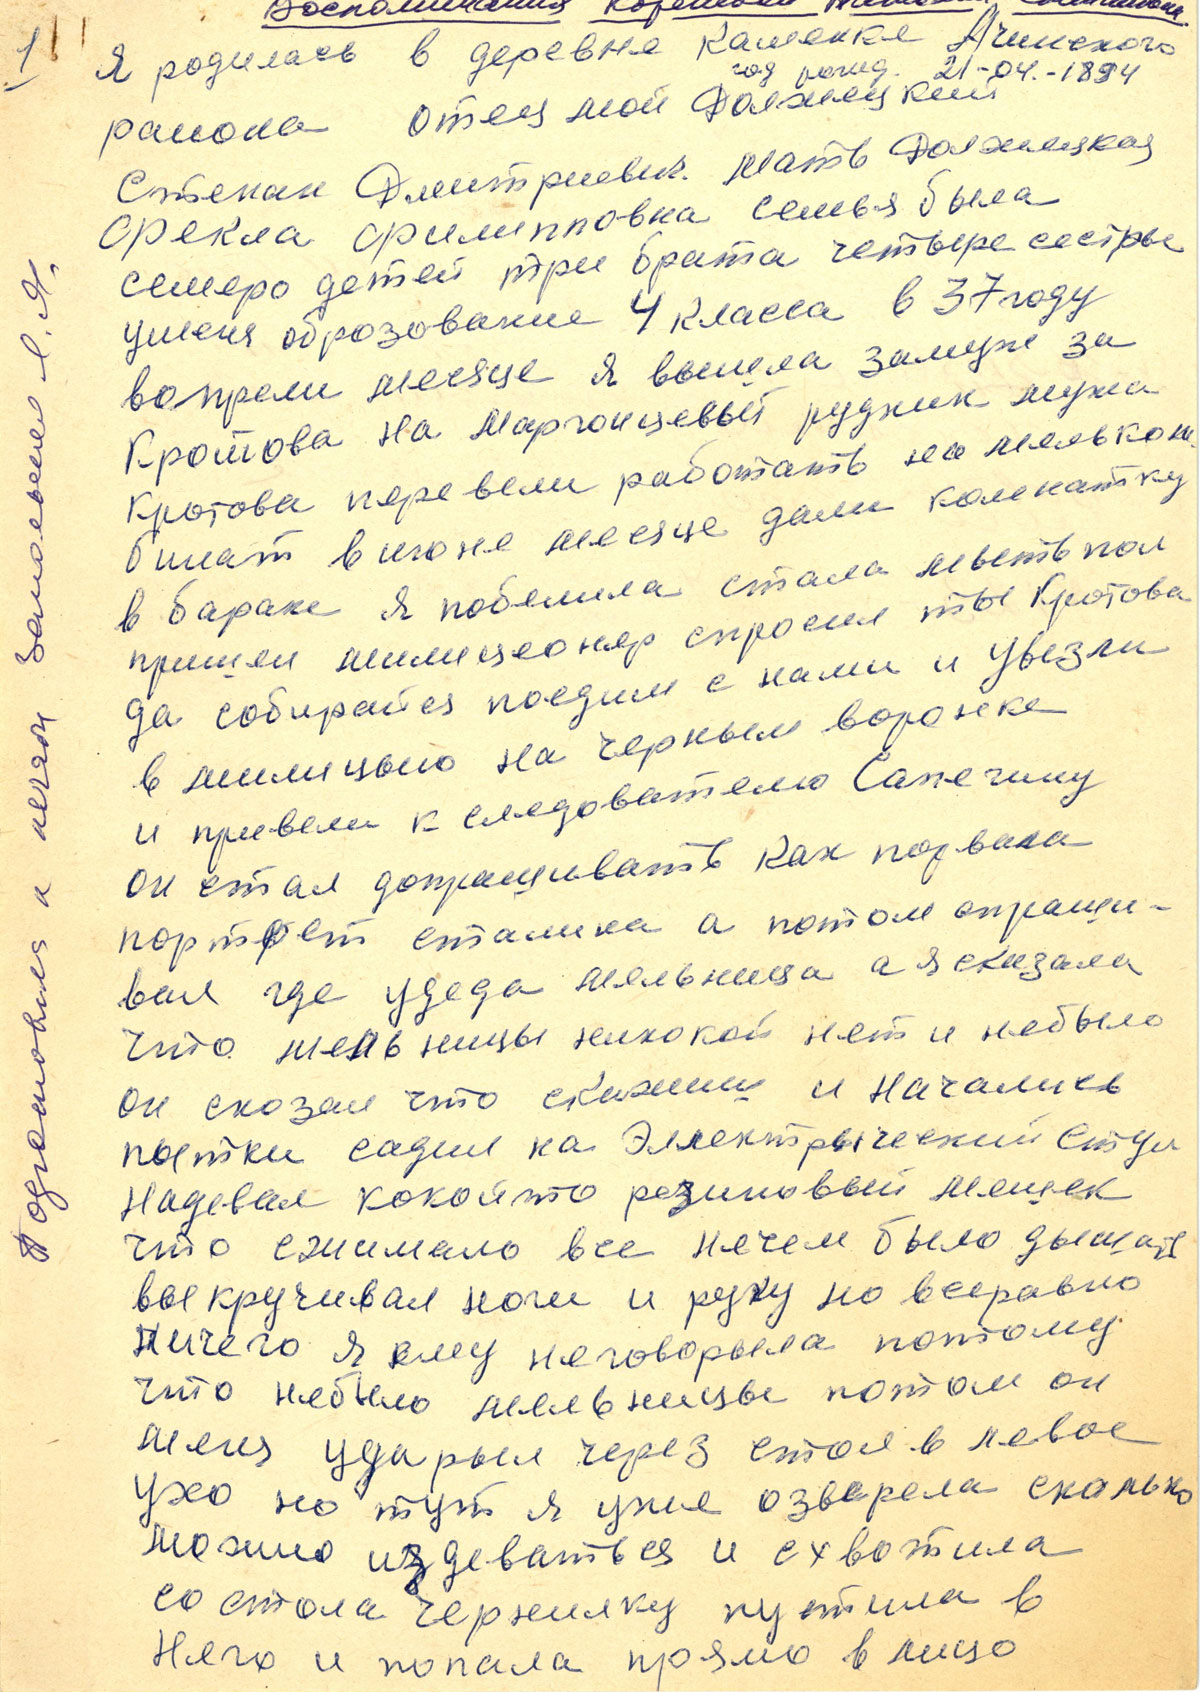 Воспоминания
1
Я родилась в деревне Каменке Ачинского
год рожд. 21-04.-1894
района отец мой Должецкий
Степан Дмитриевич. мать Должецкая
Фекла Филипповна семья была
семеро детей три брата четыре сестры
уменя оброзование 4 класса в 37 году
вопрели месяце я вышла замуж за
Кротова на Маргонцевый рудник мужа
Кротова перевели работать на мельком-
бинат в июне месяце дали коменатку
в бараке я побелила стала мыть пол
пришел милиционер спросил ты Кротова
да собирайся поедим с нами и увезли
в милицыю на черным воронке
и привели к следователю Сапечину
он стал допрашивать как порвала
портрет сталина а потом опраши-
вал где удеда мельница а я сказала
что мельницы никокой нет и небыло
он сказал что скажиш и начались
пытки садил на Электрыческий стул
надевал кокойто резиновый мешек
что сжимало все нечем было дышать
выкручивал ноги и руку но всеравно
ничего я ему неговорыла потому
что небыло мельницы потом он
меня ударыл через стол в левое
ухо но тут я уже озверела сколько
можно издеваться и схвотила
со стола чернилку пустила в
Него и попала прямо в лицо
Подготовила к печати